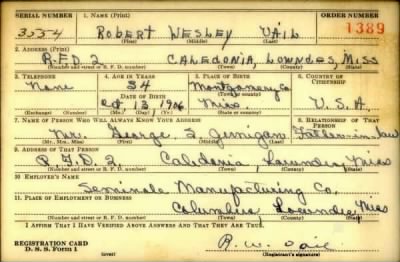 SERIAL NUMBER 1. NAME (Print) ORDER NUMBER
3554 ROBERT WESLEY VAIL 1389
(First) (Middle) (Last)
2. ADDRESS (Print)
R.F.D. 2 CALEDONIA, LOWNDES, MISS
(Number and street or R. F. D. number) (Town) (County) (State)
3. TELEPHONE 4. AGE IN YEARS 5. PLACE OF BIRTH 6. COUNTRY OF CITIZENSHIP
None 34 Montgomery Co.
DATE OF BIRTH (Town or county)
Oct 13 1906 Miss. U.S.A.
(Exchange) (Number) (Mo.) (Day) (Yr.) (State or country)
7. NAME OF PERSON WHO WILL ALWAYS KNOW YOUR ADDRESS 8. RELATIONSHIP OF THAT PERSON
Mr. George S. Jernigan Father-in-law
(Mr., Mrs., Miss) (First) (Middle) (Last)
9. ADDRESS OF THAT PERSON
R.F.D. 2, Caledonia, Lowndes, Miss
(Number and street or R. F. D. number) (Town) (County) (State)
10. EMPLOYER'S NAME
Seminole Manufacturing Co.
11. PLACE OF EMPLOYMENT OR BUSINESS
Columbus, Lowndes, Miss
(Number and street or R. F. D. number) (Town) (County) (State)
I AFFIRM THAT I HAVE VERIFIED ABOVE ANSWERS AND THAT THEY ARE TRUE.
REGISTRATION CARD R. W. Vail
D. S. S. Form 1 (over) (Registrant's signature)